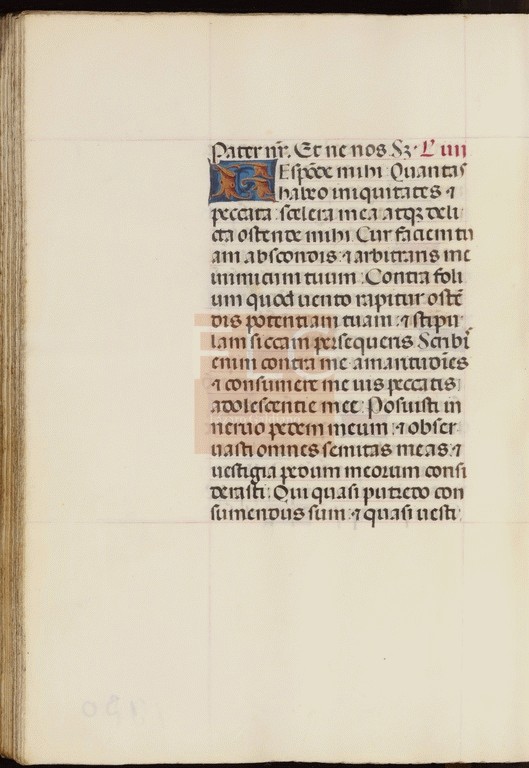 Pater nr̃. Et ne nos Sʒ. L̃ iiii
REspõde mihi Quantas
habeo iniquitates ⁊
peccata: scelera mea atqʒ deli
cta ostende mihi. Cur faciem tu
am abscondis: ⁊ arbitraris me
inimicum tuum: Contra foli
um quod uento rapitur ostẽ
dis potentiam tuam: ⁊ stipu
lam siccam persequeris Scribi᷑
enim contra me amaritudĩes
⁊ consumere me uis peccatis
adolescentie mee: Posuisti in
neruo pedem meum: ⁊ obser
uasti omnes semitas meas: ⁊
uestigia pedum meorum consi
derasti: Qui quasi putredo con
sumendus sum: ⁊ quasi uesti